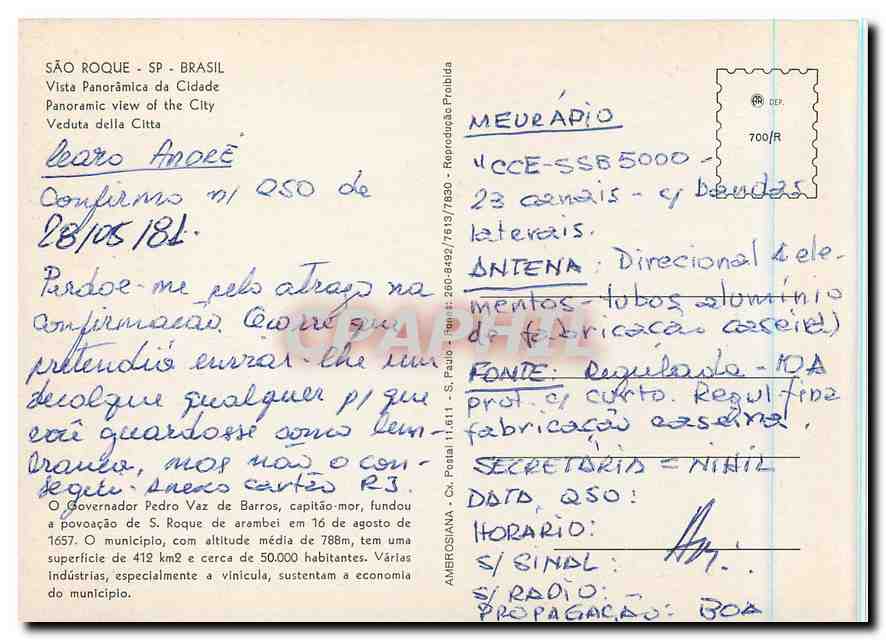 SÃO ROQUE - SP - BRASIL
Vista Panorâmica da Cidade
Panoramic view of the City
Veduta della Citta
Caro ANDRÉ
Confirmo n/ QSO de
28/05/81.
Perdoe-me pelo atrazo na
confirmação. Ocorre que
pretendia enviar-lhe um
decalque qualquer p/ que
você guardasse como lem-
brança, mas não o con-
segui. Anexo cartão R3.
O Governador Pedro Vaz de Barros, capitão-mor, fundou
a povoação de S. Roque de arambei em 16 de agosto de
1657. O municipio, com altitude média de 788m, tem uma
superficie de 412 km2 e cerca de 50.000 habitantes. Várias
indústrias, especialmente a vinicula, sustentam a economia
do municipio.
AMBROSIANA - Cx. Postal 11.611 - S. Paulo - Fones: 260-8492/7613/7830 - Reprodução Proibida
CPAPHIL
AR DEP.
700/R
MEU RÁPIO
"CCE-SSB5000 -
23 canais - c/ bandas
laterais.
ANTENA: Direcional 4 ele-
mentos - tubos alumínio
de fabricação caseira)
FONTE: Regulada - 10A
prot. c/ curto. Regul. fina
fabricação caseina.
SECRETÁRIA = NIHIL
DATA, QSO:
HORARIO:
S/ SINAL:
S/ RADIO: -
PROPAGAÇÃO: BOA